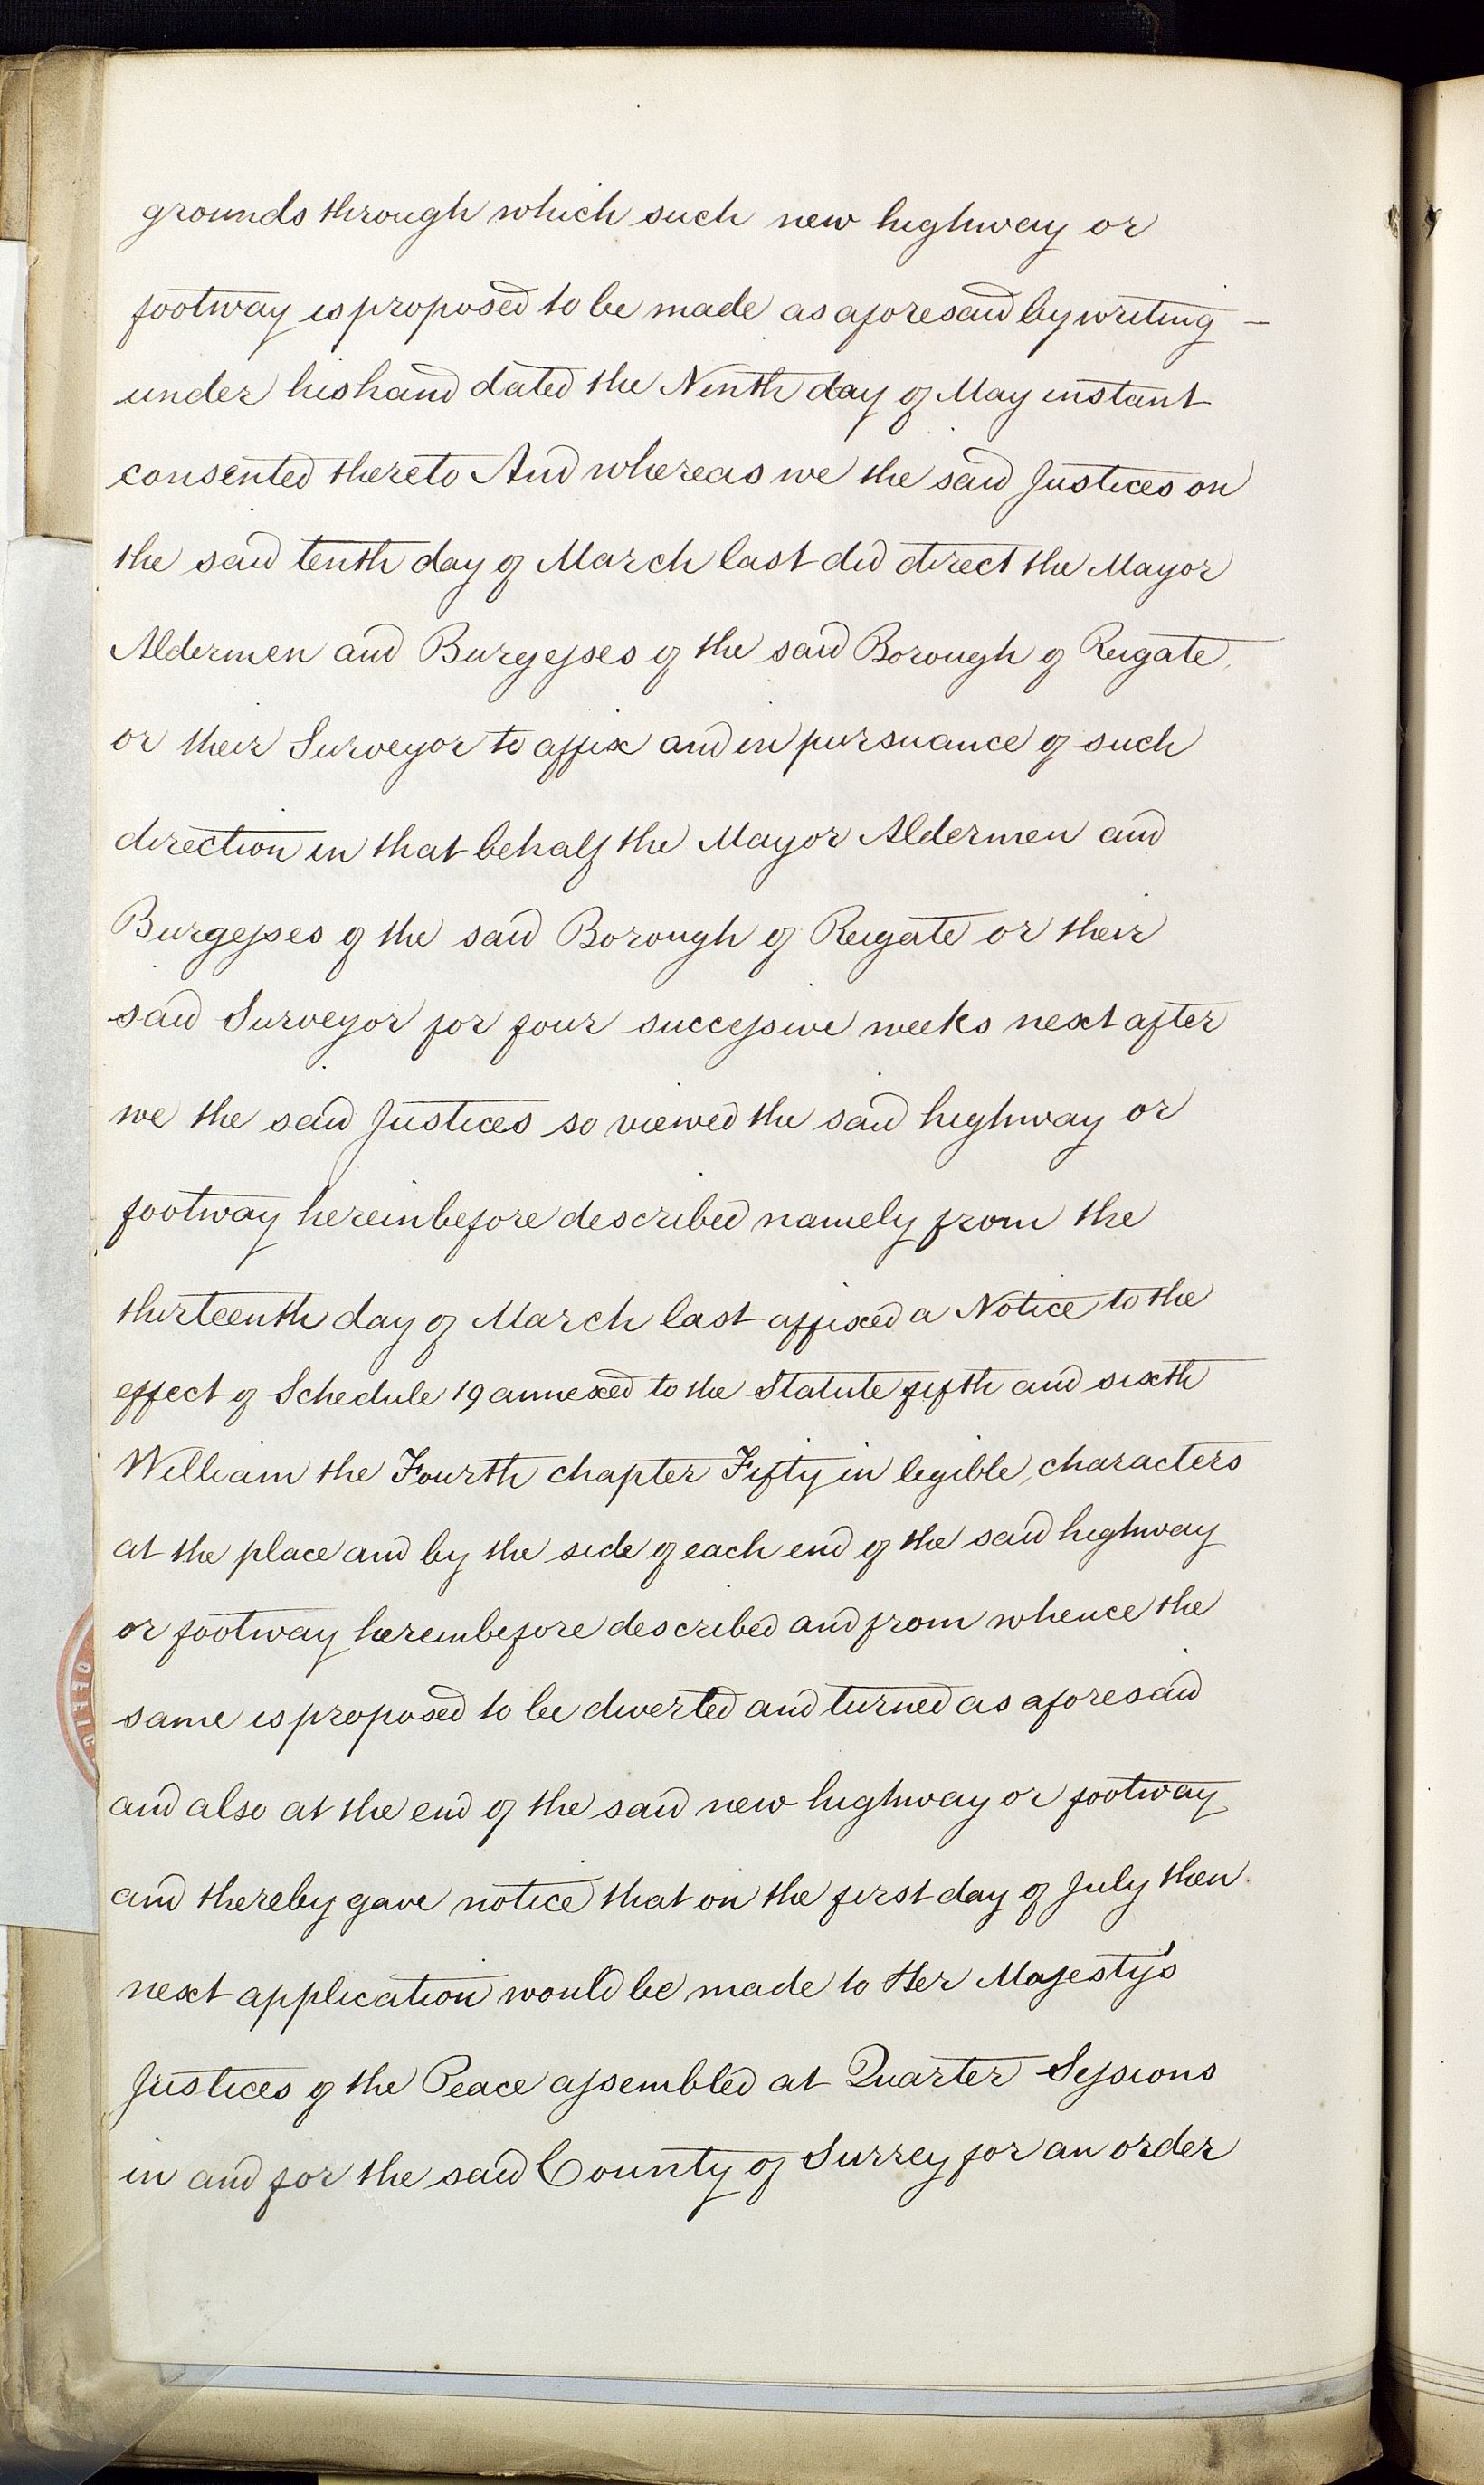 grounds through which such new highway or
footway is proposed to be made as aforesaid by writing -
under his hand dated the Ninth day of May instant
consented thereto And whereas we the said Justices on
the said tenth day of March last did direct the Mayor
Aldermen and Burgesses of the said Borough of Reigate
or their Surveyor to affix and in pursuance of such
direction in that behalf the Mayor Aldermen and
Burgesses of the said Borough of Reigate or their
said Surveyor for four successive weeks next after
we the said Justices so viewed the said highway or
footway hereinbefore described namely from the
thirteenth day of March last affixed a Notice to the
effect of Schedule 19 annexed to the Statute fifth and sixth
William the Fourth chapter Fifty in legible characters
at the place and by the side of each end of the said highway
or footway hereinbefore described and from whence the
same is proposed to be diverted and turned as aforesaid
and also at the end of the said new highway or footway
and thereby gave notice that on the first day of July then
next application would be made to Her Majesty's
Justices of the Peace assembled at Quarter Sessions
in and for the said County of Surrey for an order